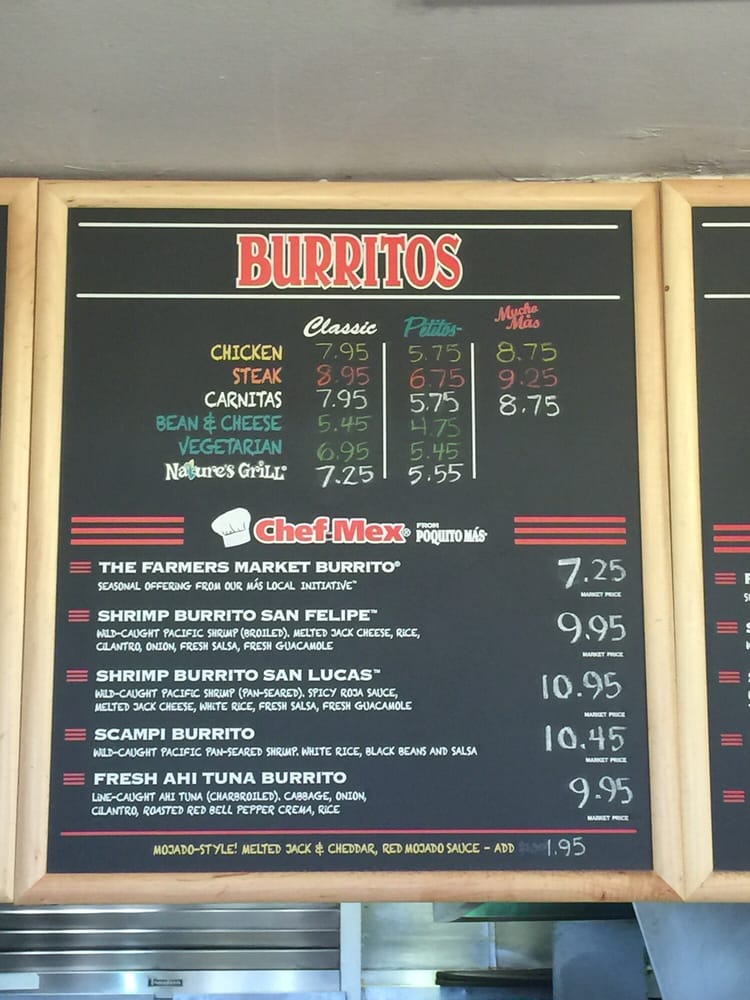 BURRITOS
Classic Petitos Mucho Más
CHICKEN 7.95 5.75 8.75
STEAK 8.95 6.75 9.25
CARNITAS 7.95 5.75 8.75
BEAN & CHEESE 5.45 4.75
VEGETARIAN 6.95 5.45
Nature's Grill 7.25 5.55
Chef-Mex® FROM POQUITO MÁS
THE FARMERS MARKET BURRITO® 7.25
SEASONAL OFFERING FROM OUR MÁS LOCAL INITIATIVE™ MARKET PRICE
SHRIMP BURRITO SAN FELIPE™ 9.95
WILD-CAUGHT PACIFIC SHRIMP (BROILED). MELTED JACK CHEESE, RICE,
CILANTRO, ONION, FRESH SALSA, FRESH GUACAMOLE
MARKET PRICE
SHRIMP BURRITO SAN LUCAS™ 10.95
WILD-CAUGHT PACIFIC SHRIMP (PAN-SEARED). SPICY ROJA SAUCE,
MELTED JACK CHEESE, WHITE RICE, FRESH SALSA, FRESH GUACAMOLE
MARKET PRICE
SCAMPI BURRITO 10.45
WILD-CAUGHT PACIFIC PAN-SEARED SHRIMP. WHITE RICE, BLACK BEANS AND SALSA
MARKET PRICE
FRESH AHI TUNA BURRITO 9.95
LINE-CAUGHT AHI TUNA (CHARBROILED). CABBAGE, ONION,
CILANTRO, ROASTED RED BELL PEPPER CREMA, RICE
MARKET PRICE
MOJADO-STYLE! MELTED JACK & CHEDDAR, RED MOJADO SAUCE - ADD 1.95